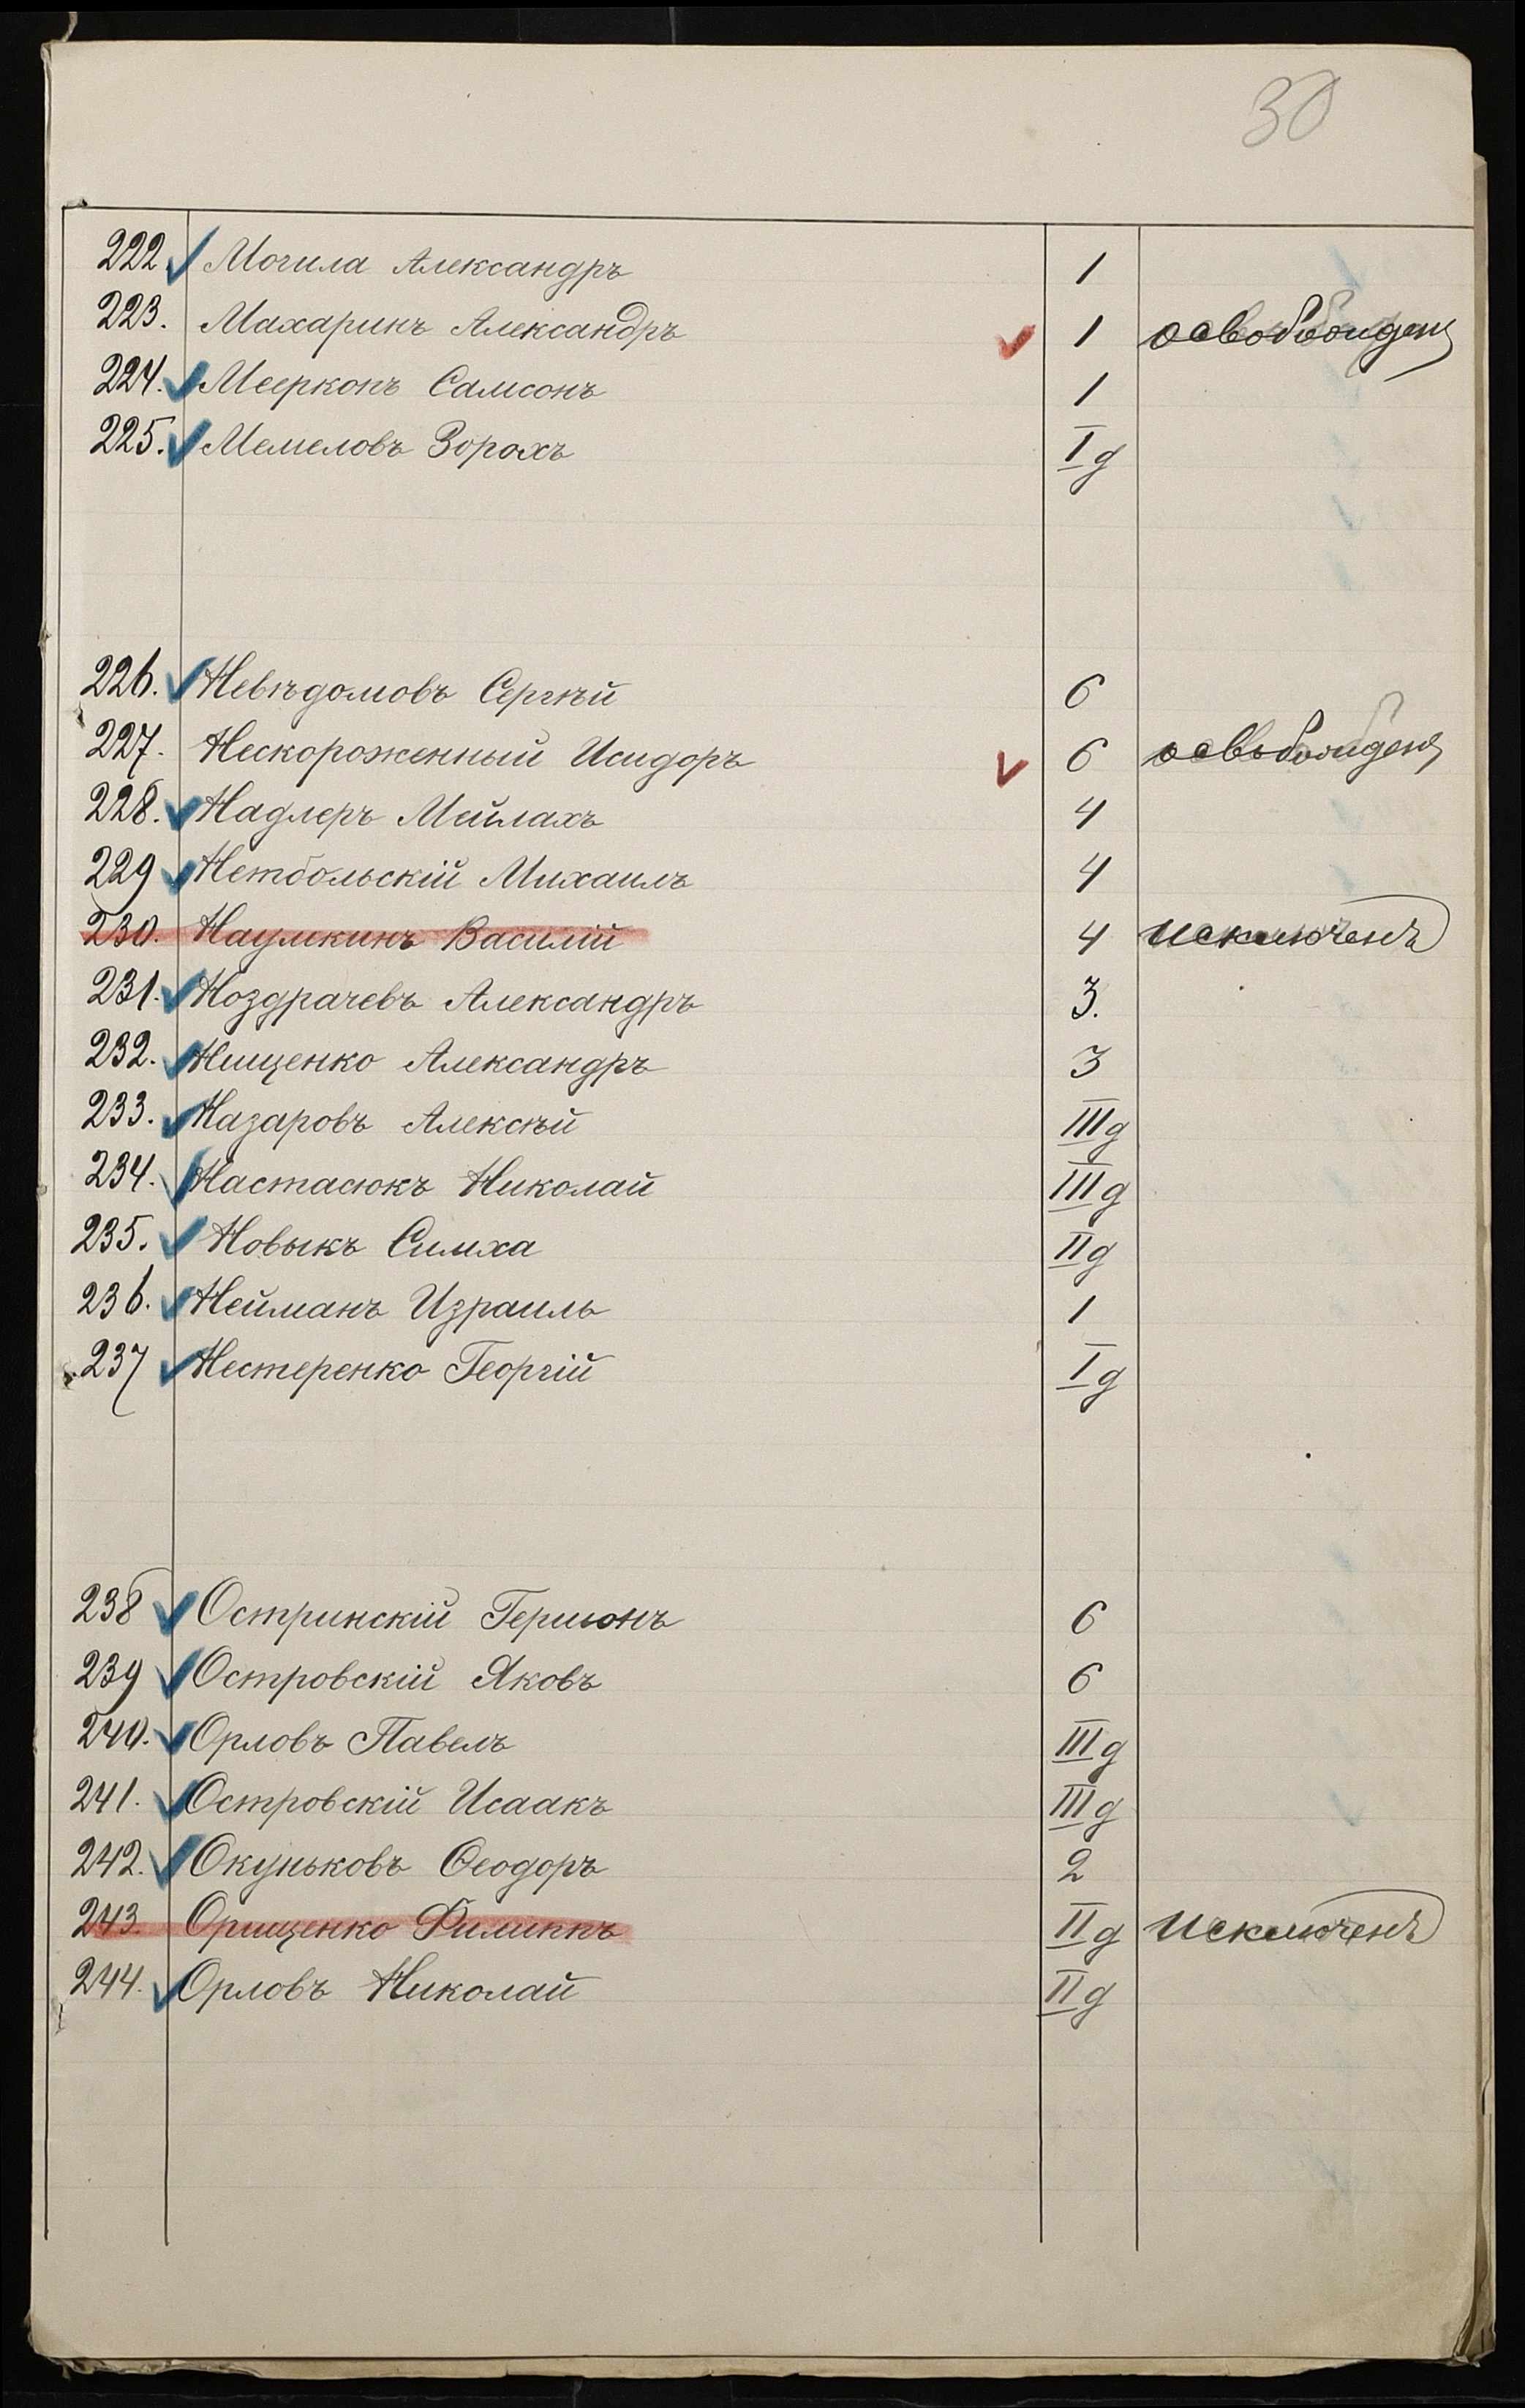 30
222. Могила Александръ 1
223. Махаринъ Александръ 1 освобожденъ
224. Меерконъ Самсонъ 1
225. Мемеловъ Зорохъ I д
226. Невѣдомовъ Сергѣй 6
227. Нескороженный Исидоръ 6 освобожденъ
228. Надлеръ Мейлахъ 4
229 Нетбольскій Михаилъ 4
230. Наумкинъ Василій 4 исключенъ
231. Ноздрачевъ Александръ 3.
232. Нищенко Александръ 3
233. Назаровъ Алексѣй III д
234. Настасюкъ Николай III д
235. Новыкъ Симха II д
236. Нейманъ Израиль 1
237 Нестеренко Георгій I д
238 Остринскій Гершонъ 6
239 Островскій Яковъ 6
240. Орловъ Павелъ III д
241. Островскій Исаакъ III д
242. Окуньковъ Ѳеодоръ 2
243. Орищенко Филиппъ II д исключенъ
244. Орловъ Николай II д